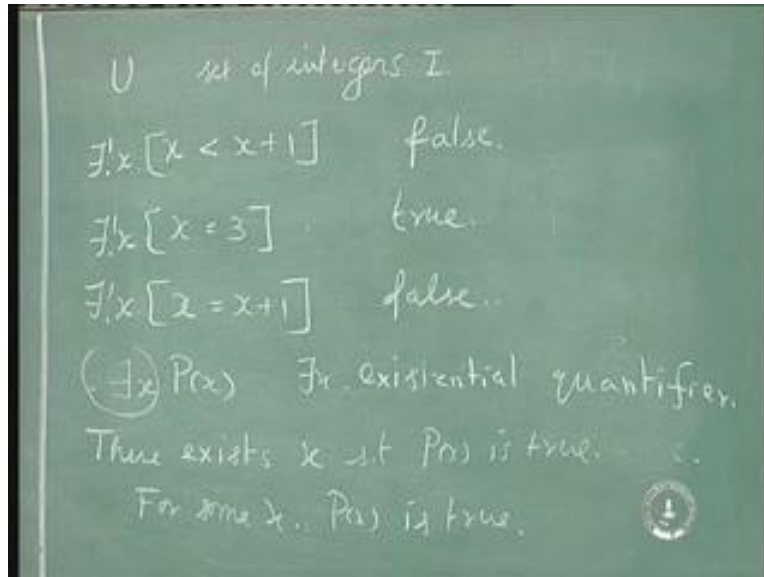 U set of integers I
∃!x [x < x+1] false.
∃!x [x = 3] . true.
∃!x [x = x+1] false..
∃x P(x) ∃x existential quantifier.
There exists x s.t P(x) is true.
For some x. P(x) is true.